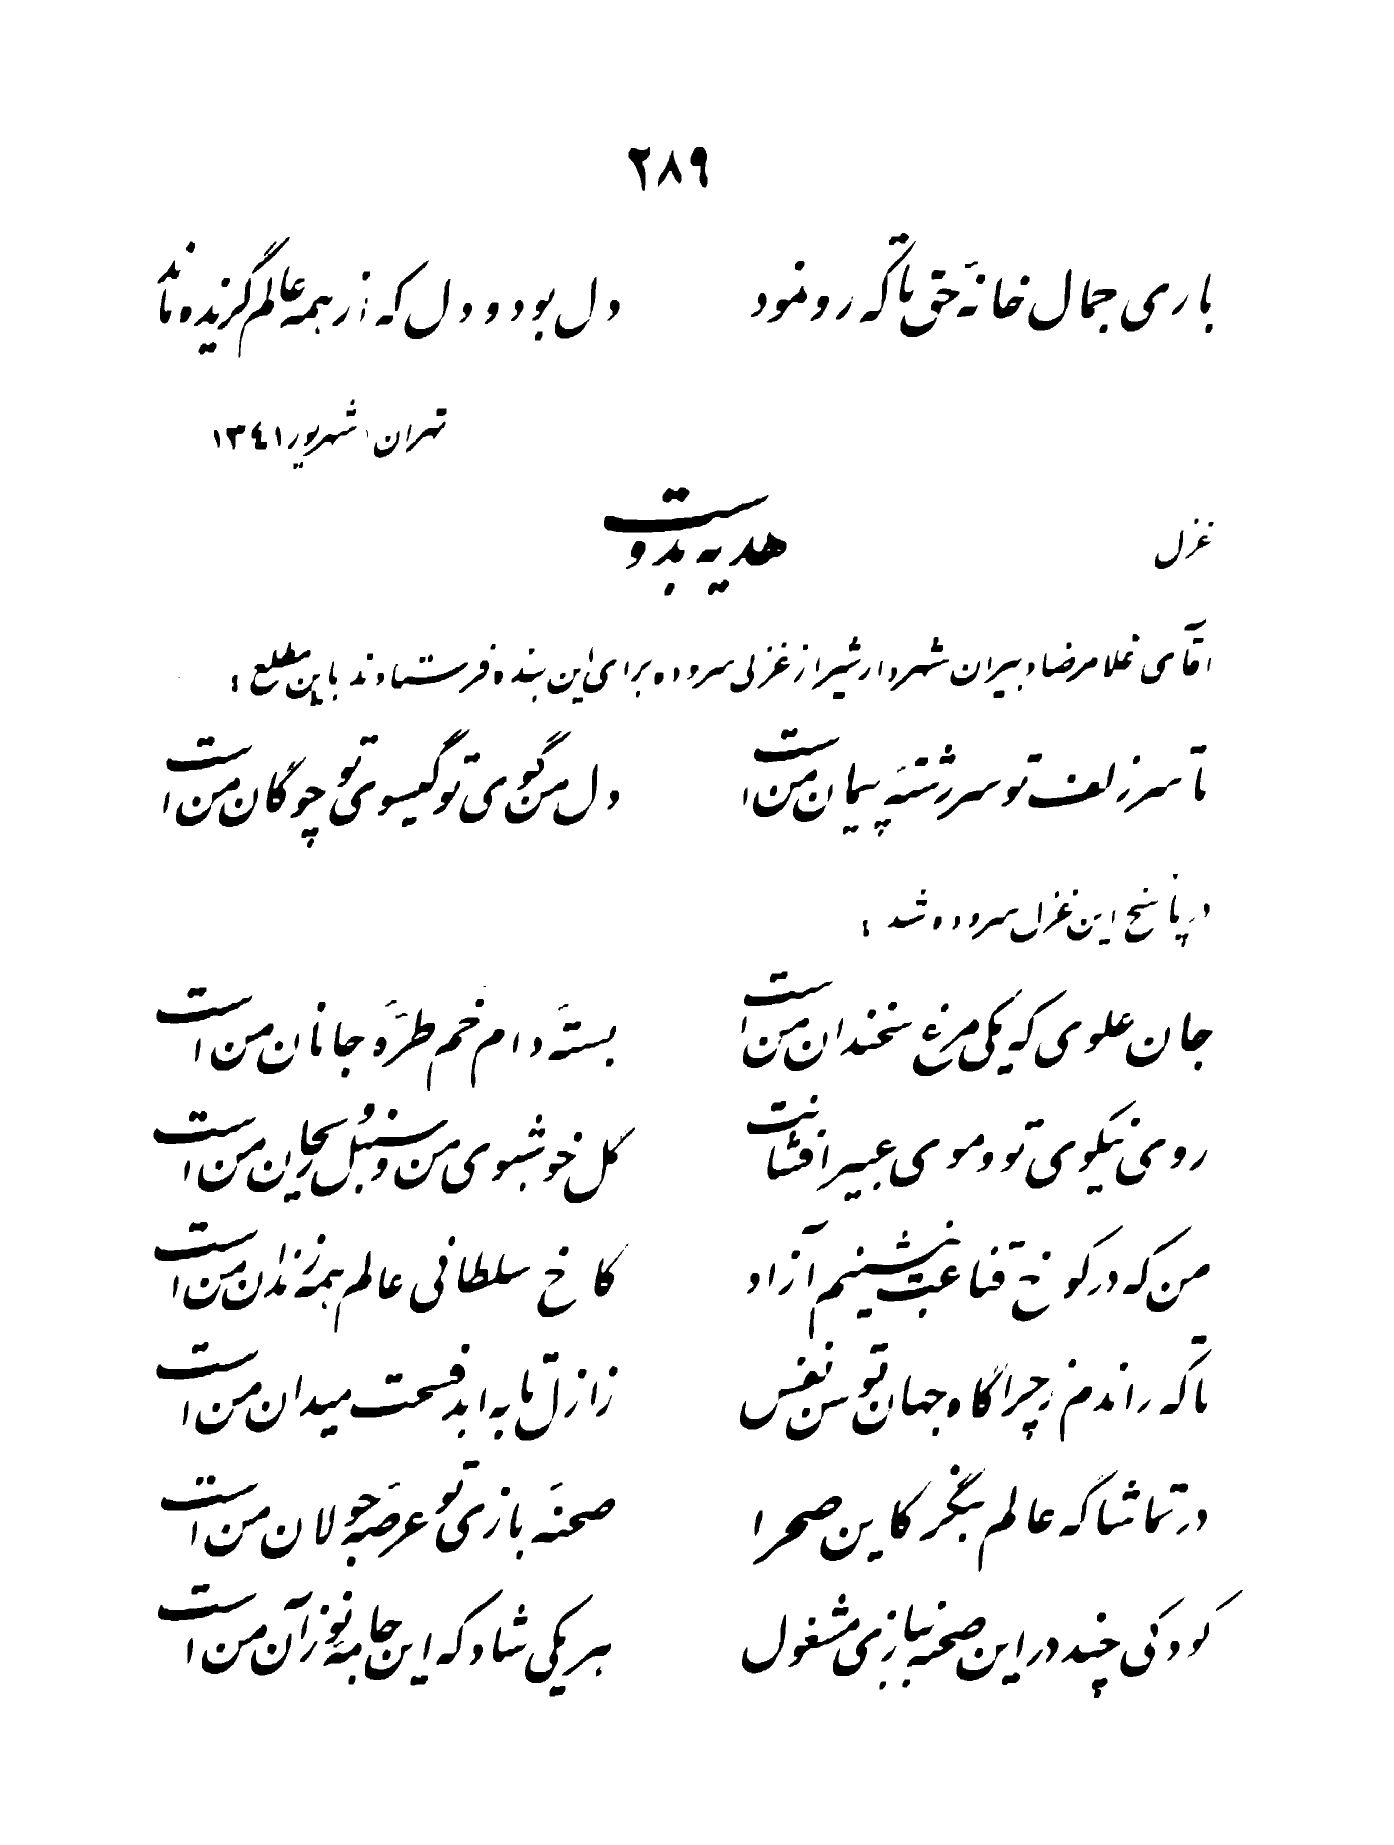 ۲۸۹
باری جمال خانهٔ حق تا که رو نمود دل بود و دل که از همه عالم گزیده ماند
تهران، شهریور ۱۳۴۱
غزل هدیه بدوست
آقای غلامرضا دبیران شهردار شیراز غزلی سروده برای این بنده فرستادند باین مطلع :
تا سر زلف تو سررشتهٔ پیمان من است دل من گوی تو گیسوی تو چوگان من است
در پاسخ این غزل سروده شد :
جان علوی که یکی مرغ سخندان من است بستهٔ دام خم طرهٔ جانان من است
روی نیکوی تو و موی عبیر افشانت گل خوشبوی من و سنبل و ریحان من است
من که در کنج قناعت بنشینم آزاد کاخ سلطانی عالم همه زندان من است
تا که راندم ز چراگاه جهان توسن نفس ز ازل تا به ابد فسحت میدان من است
در تماشاگه عالم بنگر کاین صحرا صحنهٔ بازی تو عرصهٔ جولان من است
کودکی چند در این صحنه ببازی مشغول هر یکی شاد که این جامهٔ نو زآن من است